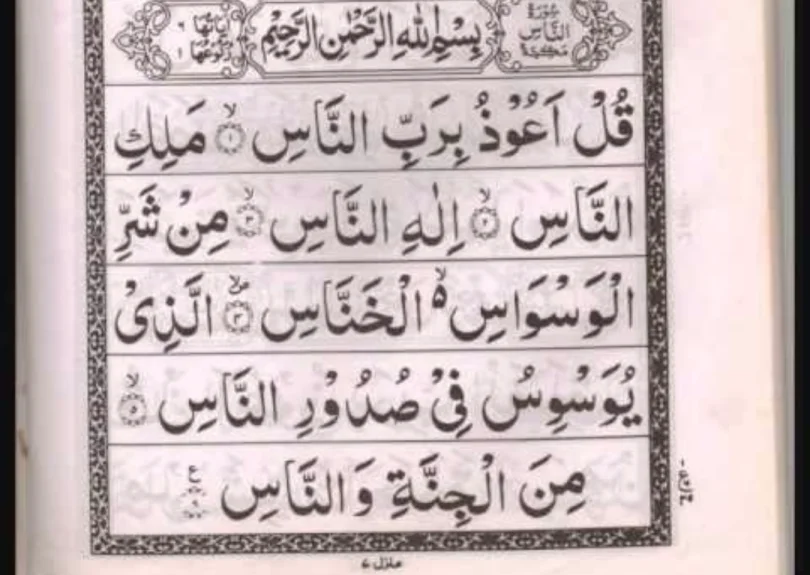 سُورَةُ النَّاسِ مَكِّيَّةٌ
بِسْمِ اللهِ الرَّحْمٰنِ الرَّحِيْمِ
اٰيَاتُهَا ٦ رُكُوْعُهَا ١
قُلْ اَعُوْذُ بِرَبِّ النَّاسِ ۙ‏﴿۱﴾ مَلِكِ
النَّاسِ ۙ‏﴿۲﴾ اِلٰهِ النَّاسِ ۙ‏﴿۳﴾ مِنْ شَرِّ
الْوَسْوَاسِ ۙ۬ الْخَنَّاسِ ۪ۙ‏﴿۴﴾ الَّذِىْ
يُوَسْوِسُ فِىْ صُدُوْرِ النَّاسِ ۙ‏﴿۵﴾
مِنَ الْجِنَّةِ وَالنَّاسِ